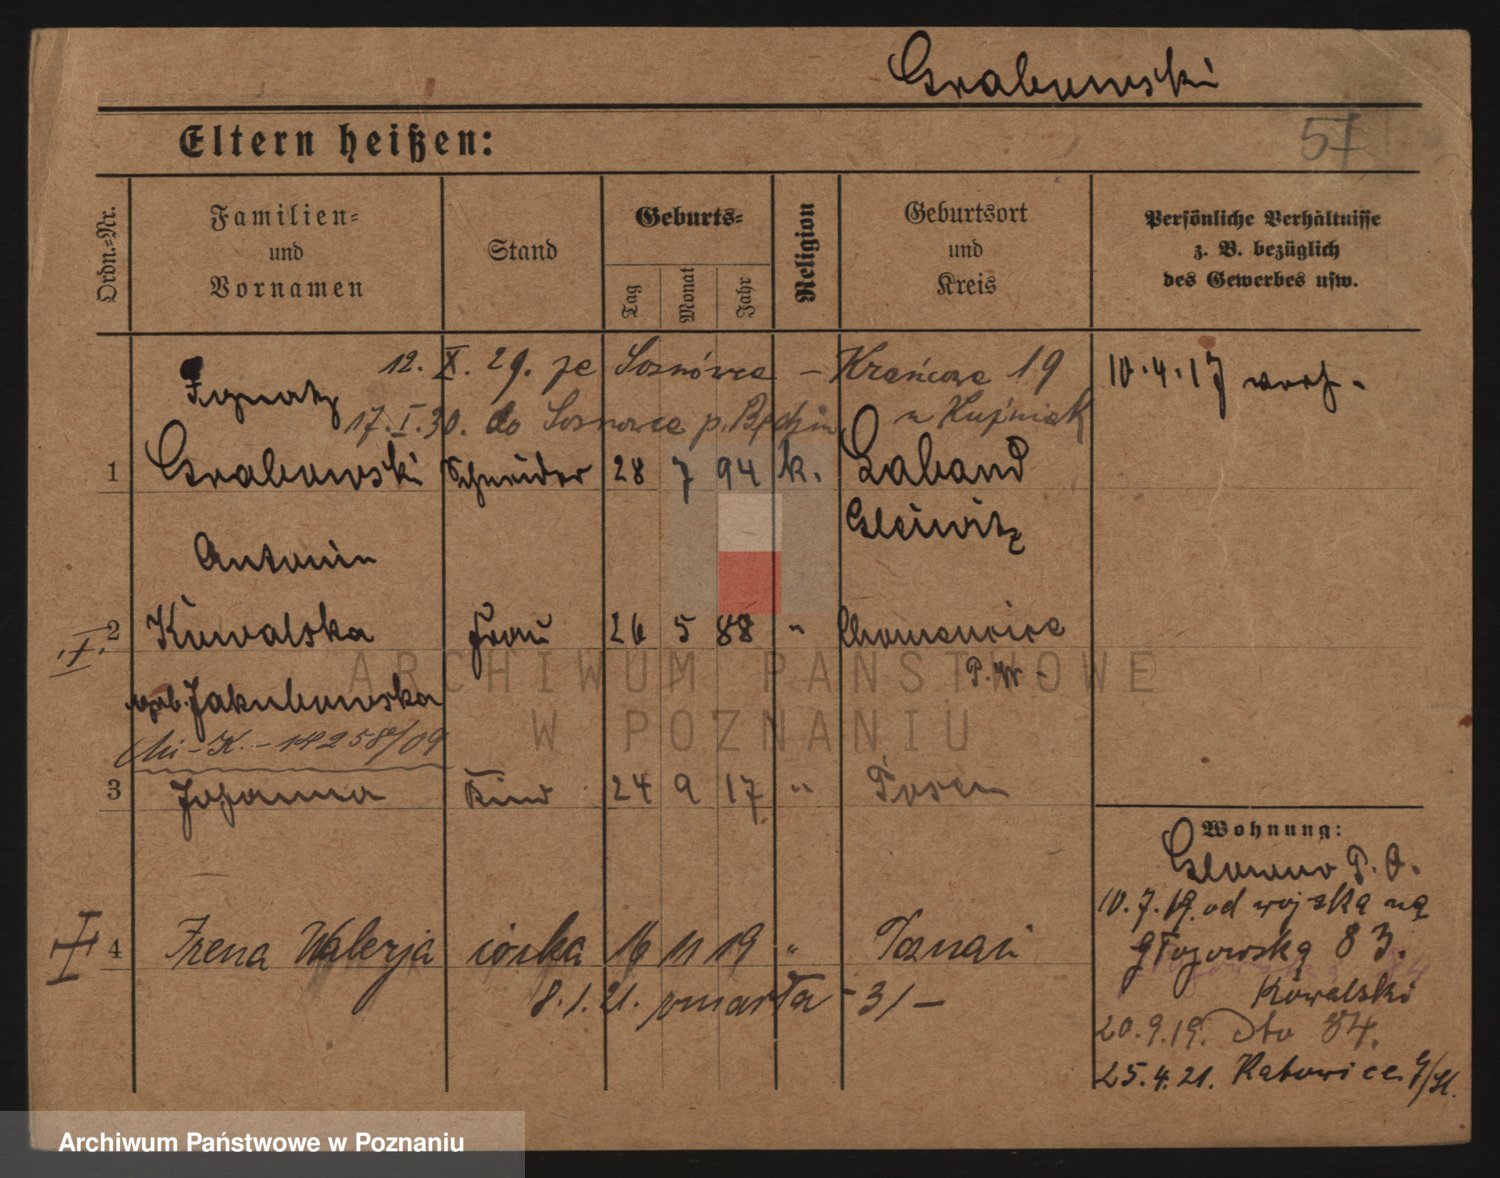 Grabowski
Eltern heißen:
57
Ordn.=Nr.
Familien=
und
Vornamen
Stand
Geburts=
Tag
Monat
Jahr
Religion
Geburtsort
und
Kreis
Persönliche Verhältnisse
z. B. bezüglich
des Gewerbes usw.
12. X. 29. ze Sosnówca – Krańcowa 19
10.4.17
Ignatz
17. I. 30. do Sosnowca p. Będzin u Kuźniak
1 Grabowski Schneider 28 7 94 k. Laband
Gleiwitz
Antonin
2 Kowalska Frau 26 5 88 " Chomencice
P. W.
geb. Jakubowska
14258/09
3 Johanna Kind 24 9 17 " Posen
Wohnung:
Glowno P. O.
10.7.19. od wojska na
Głogowską 83.
4 Irena Walerja córka 16 11 19 " Poznań
Kowalski
8.1.21. zmarła – 31 –
20.9.19. dto 84.
25.4.21. Katowice G/Sl.
ARCHIWUM PAŃSTWOWE
W POZNANIU
Archiwum Państwowe w Poznaniu